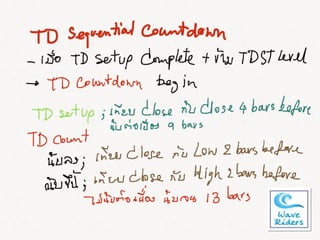 TD Sequential Countdown
- เมื่อ TD Setup Complete + ข้าม TDST level
→ TD Countdown begin
TD setup ; เทียบ Close กับ Close 4 bars before
นับต่อเนื่อง 9 bars
TD Count
นับลง ; เทียบ Close กับ Low 2 bars before
นับขึ้น ; เทียบ close กับ High 2 bars before
ไม่นับต่อเนื่อง นับจน 13 bars
Wave
Riders